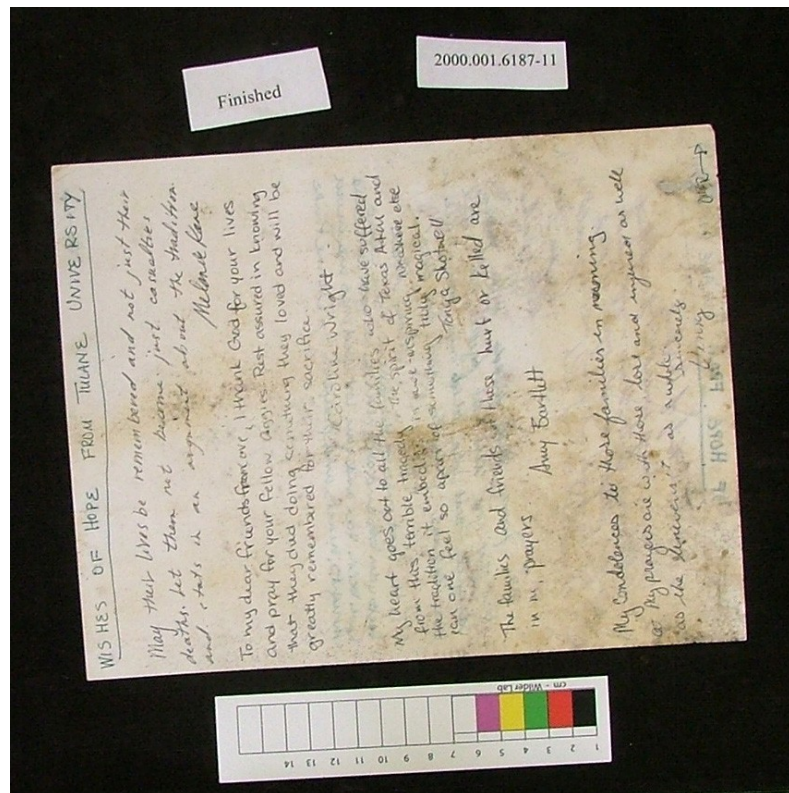 Finished
2000.001.6187-11
WISHES OF HOPE FROM TULANE UNIVERSITY
May their lives be remembered and not just their
deaths. Let them not become just casualties
and stats in an argument about the tradition.
Melanie Kane
To my dear friends from ove, I thank God for your lives
and pray for your fellow Aggies. Rest assured in knowing
that they died doing something they loved and will be
greatly remembered for their sacrifice.
Caroline Wright
My heart goes out to all the families who have suffered
from this terrible tragedy. The spirit of Texas A&M and
the tradition it embodies is awe-inspiring. nowhere else
can one feel so apart of something truly magical.
Tonya Shotwell
The families and friends of those hurt or killed are
in my prayers Amy Bartlett
My Condolences to those families in morning
My prayers are with those lost and injured as well
as the
Sincerely
OF HOPE FROM
cm - Wilder Lab
1 2 3 4 5 6 7 8 9 10 11 12 13 14